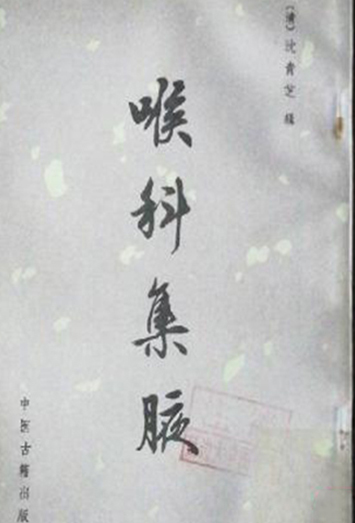 〔清〕沈青芝 编
喉科集腋
中医古籍出版